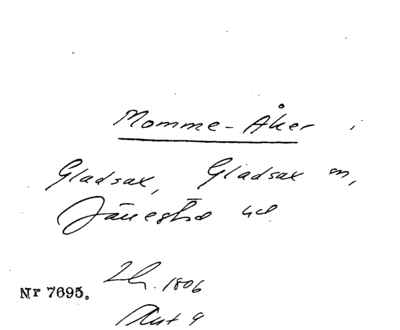 Momme-Åker i
Gladsax, Gladsax sn,
Järrestad hd.
Lh. 1806
Nr 7695.
Akt 9